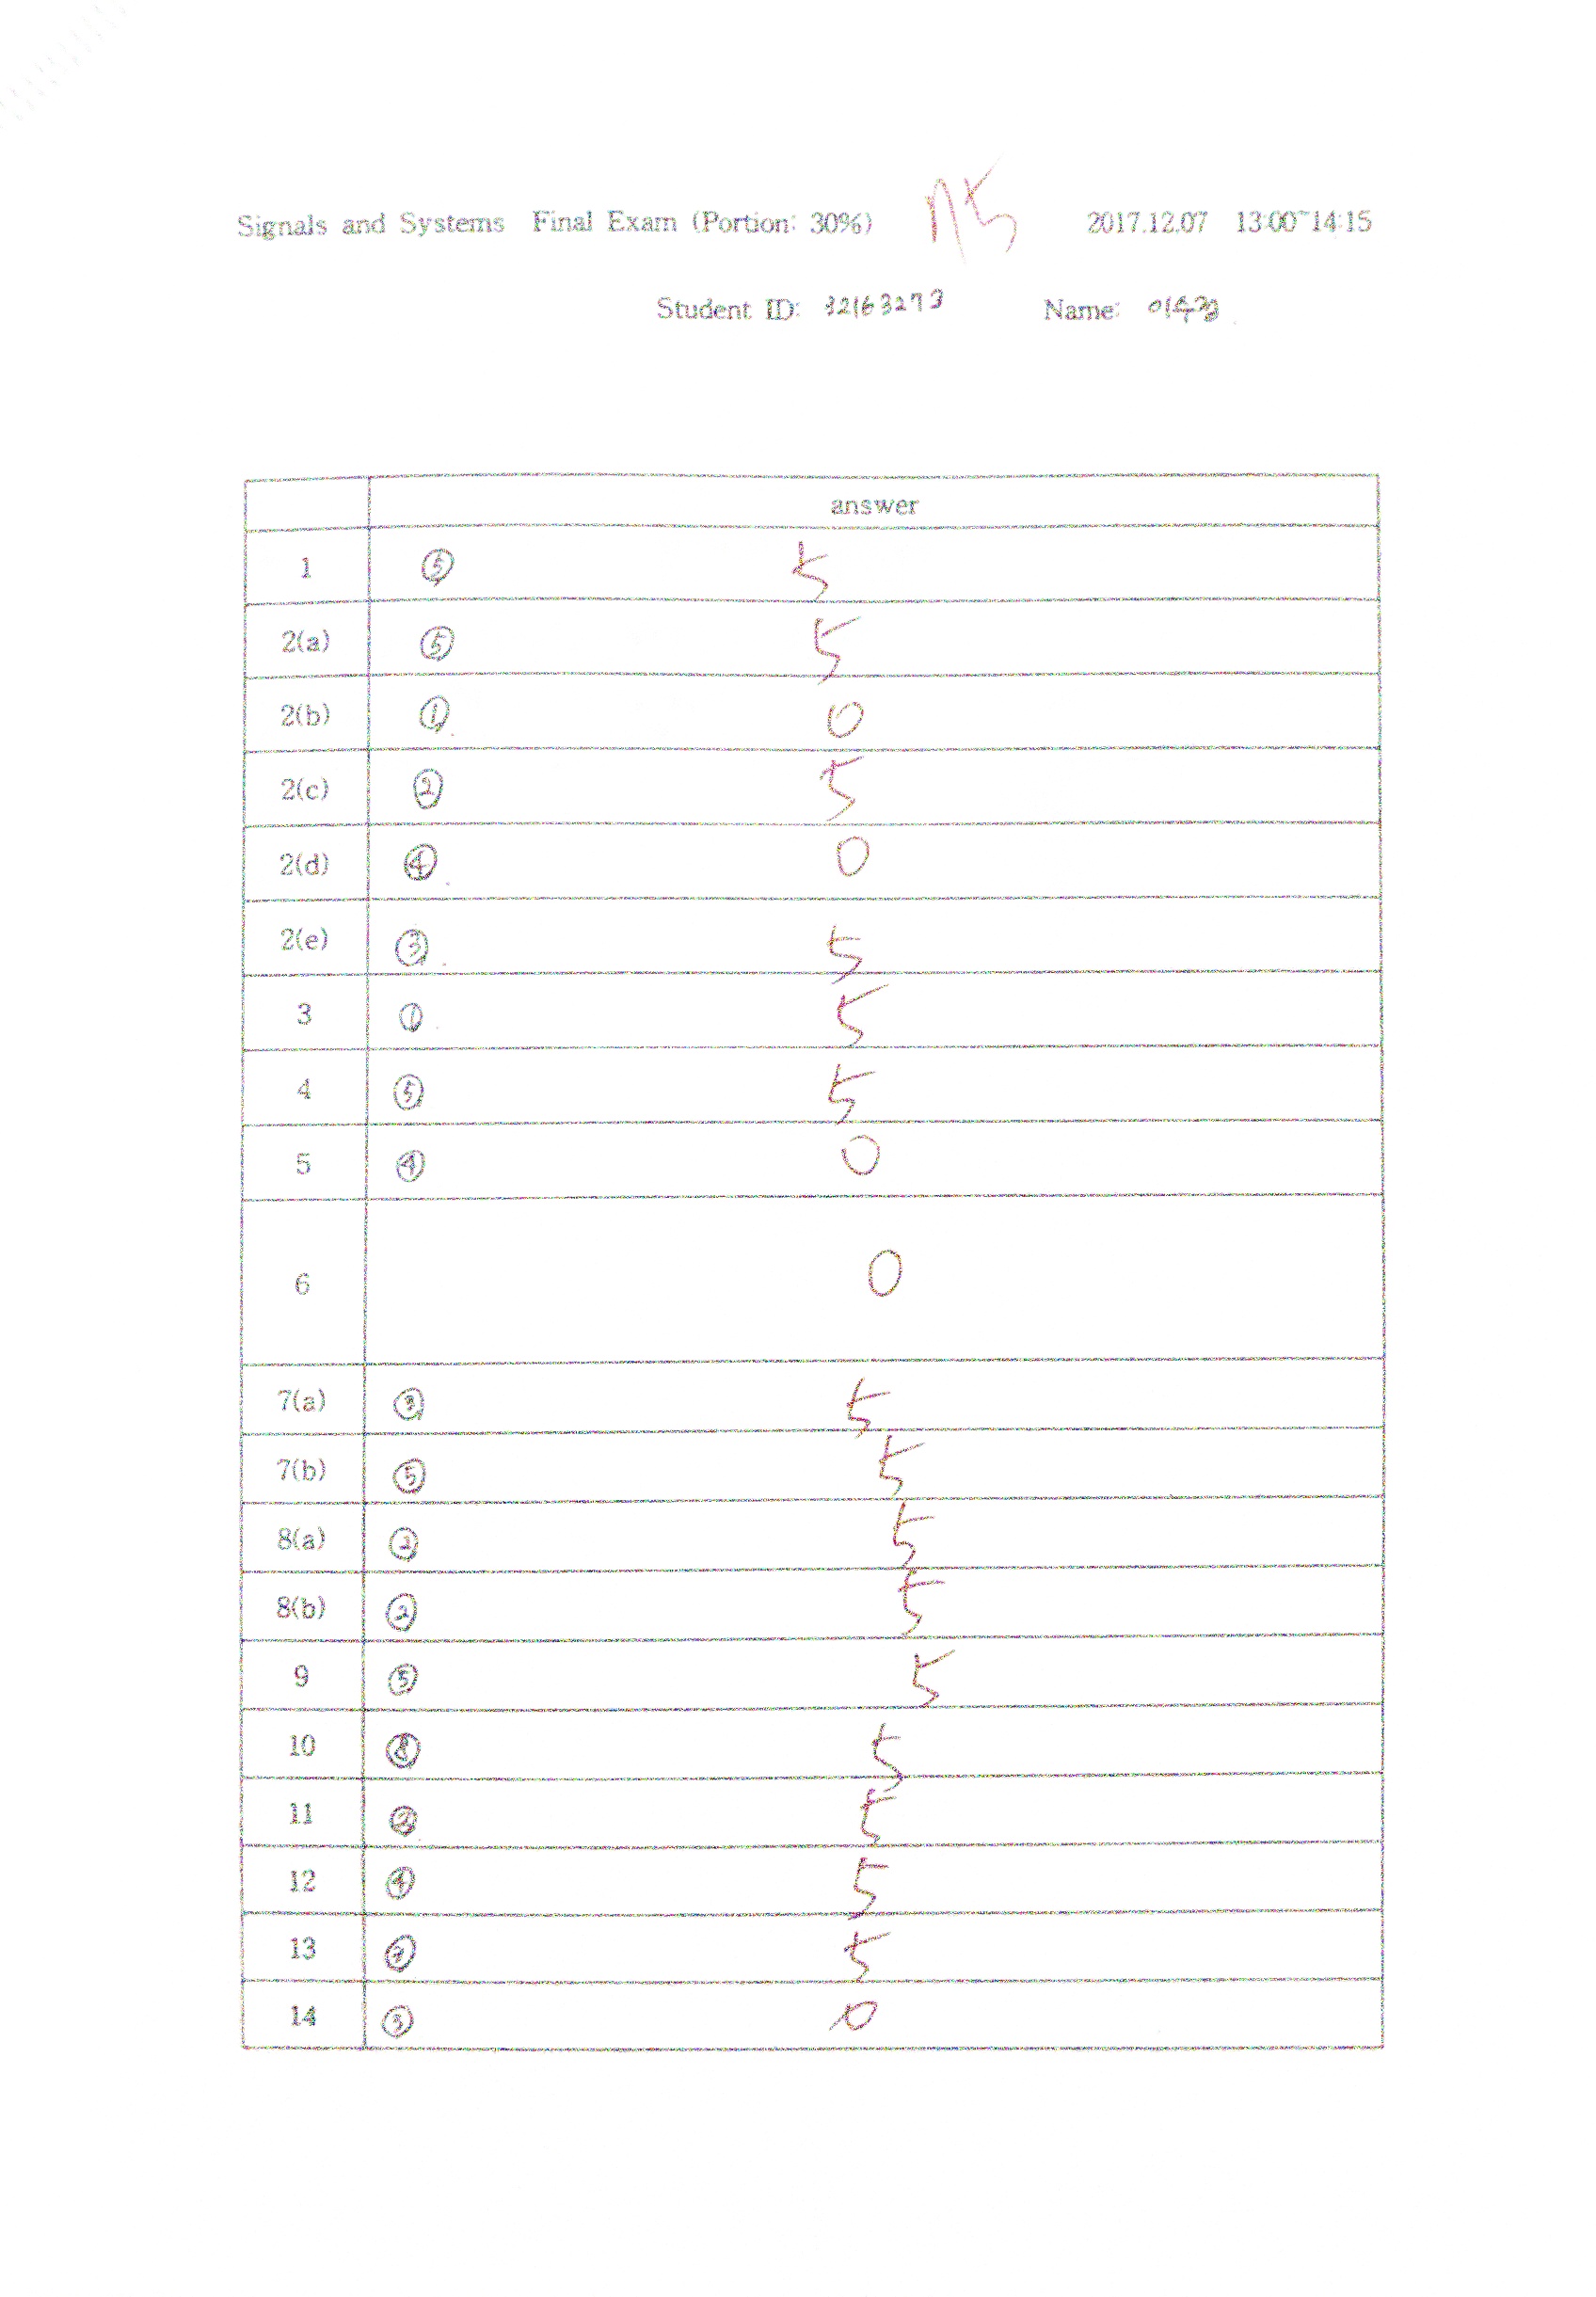 Signals and Systems Final Exam (Portion: 30%) 75 2017.12.07 13:00~14:15
Student ID: 32163273 Name:
answer
1 ⑤ 5
2(a) ⑤ 5
2(b) ① 0
2(c) ② 5
2(d) ④ 0
2(e) ③ 5
3 ① 5
4 ⑤ 5
5 ④ 0
6 0
7(a) ③ 5
7(b) ⑤ 5
8(a) ② 5
8(b) ② 5
9 ⑤ 5
10 5
11 ② 5
12 ④ 5
13 5
14 ③ 0